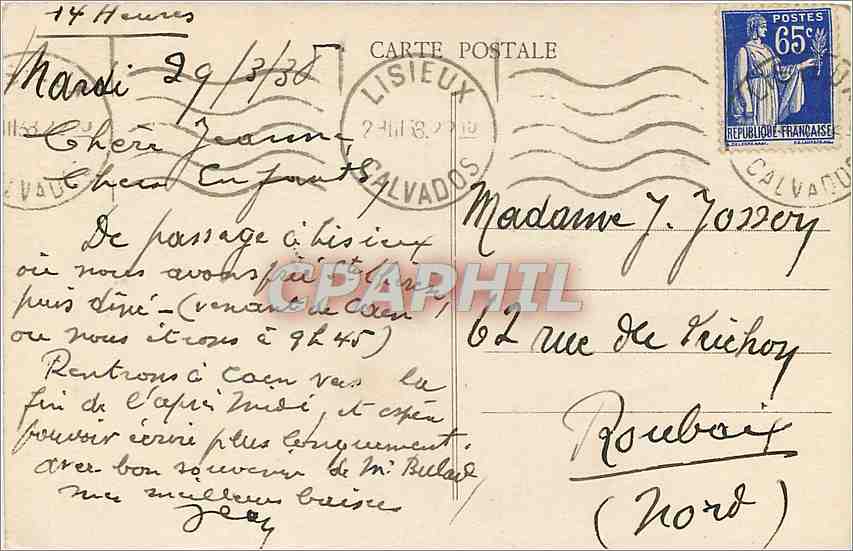 14 Heures
Mardi 29/3/38
CARTE POSTALE
LISIEUX
CALVADOS
POSTES
65c
REPUBLIQUE-FRANÇAISE
CALVADOS
Chère Jeanne,
Chers Enfants,
De passage à Lisieux
où nous avons prié Ste
puis diné - (venant de Caen
où nous étions à 9h45)
Rentrons à Caen vers la
fin de l'après Midi, et
pouvoir écrire plus longuement.
avec bon souvenir de Mr
mes meilleurs baisers
Jean
CPAPHIL
Madame J.
62 rue de
Roubaix
(Nord)